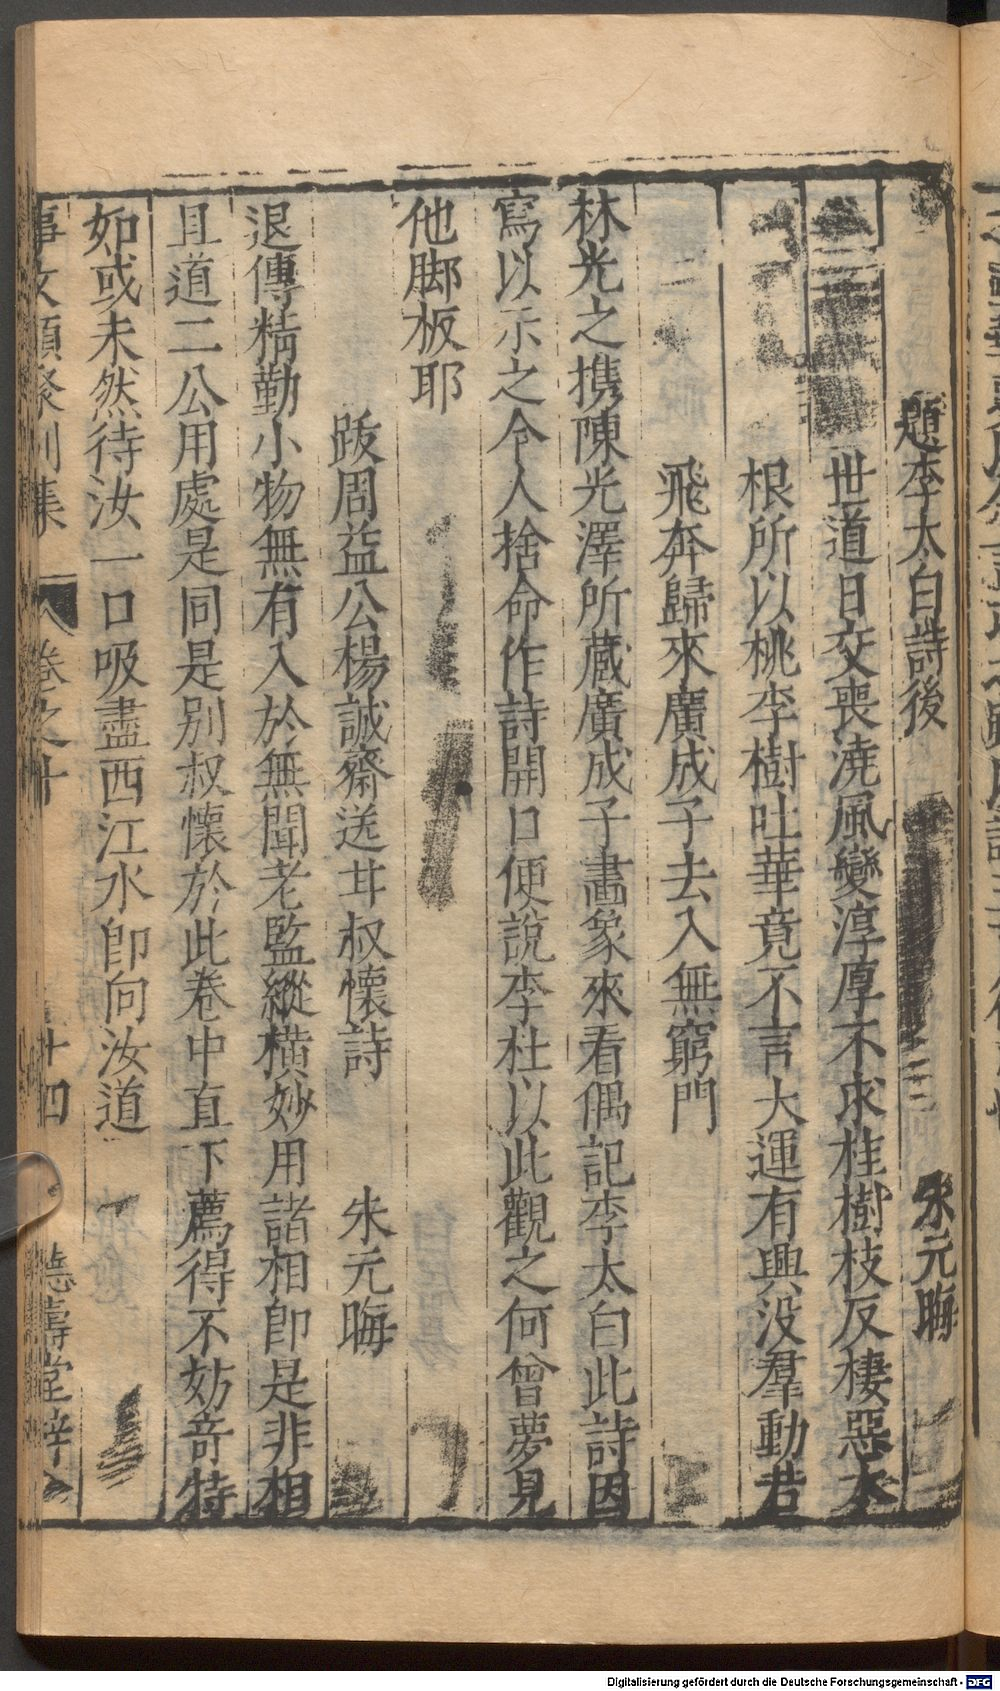 題李太白詩後 朱元晦
世道日交喪澆風變淳厚不求桂樹枝反棲惡木
根所以桃李樹吐華竟不言大運有興没羣動若
飛奔歸來廣成子去入無窮門
林光之携陳光澤所蔵廣成子畵象來看偶記李太白此詩因
寫以示之今人捨命作詩開口便說李杜以此觀之何曾夢見
他脚板耶
跋周益公楊誠齋送甘叔懷詩 朱元晦
退傳精勤小物無有入於無間老監縱橫妙用諸相卽是非相
且道二公用處是同是别叔懷於此卷中直下薦得不妨竒特
如或未然待汝一口吸盡西江水卽向汝道
事文類聚别集 卷之十 十四 德壽堂梓
Digitalisierung gefördert durch die Deutsche Forschungsgemeinschaft - DFG